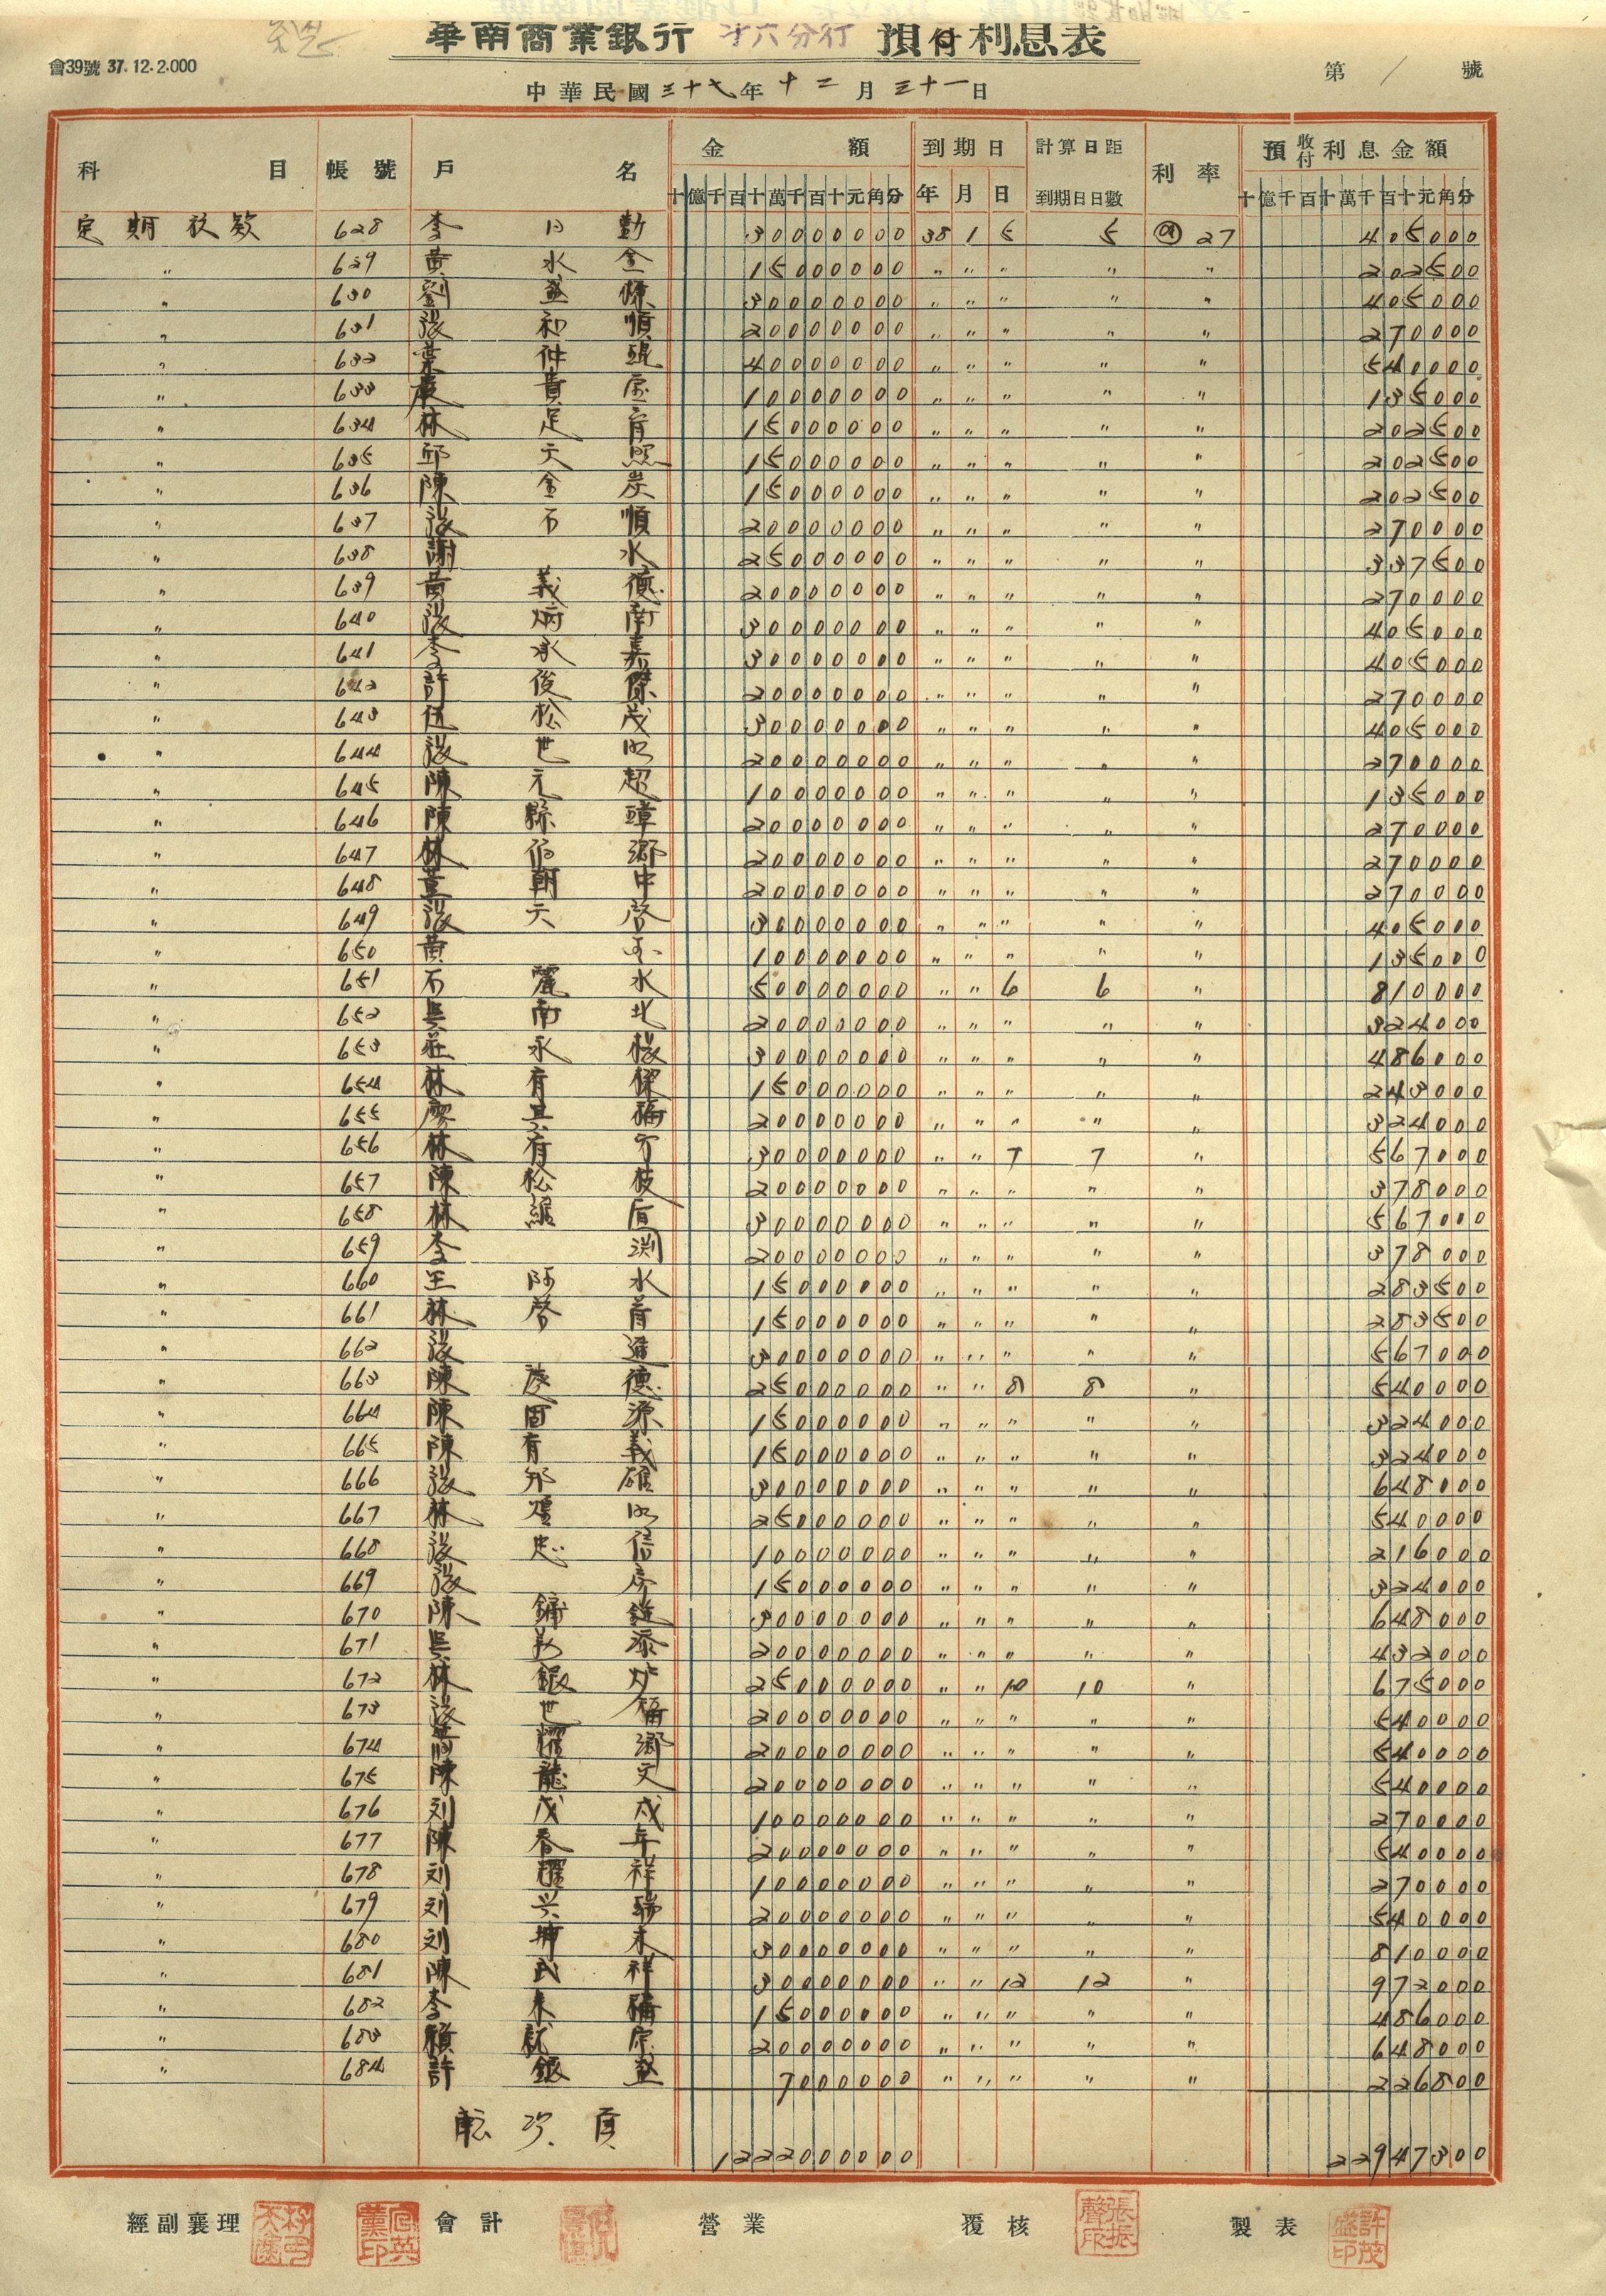 華南商業銀行 斗六分行 預付利息表
會39號 37.12.2.000
中華民國三十七年十二月三十一日
第 1 號
科目 帳號 戶名 金額 到期日 計算日距 利率 預收付利息金額
十億千百十萬千百十元角分 年 月 日 到期日日數 十億千百十萬千百十元角分
定期存款 628 李日勳 30000000 38 1 5 5 @ 27 405000
〃 629 黃水金 15000000 〃 〃 〃 〃 〃 202500
〃 630 劉 30000000 〃 〃 〃 〃 〃 405000
〃 631 張和順 20000000 〃 〃 〃 〃 〃 270000
〃 632 葉仲琨 40000000 〃 〃 〃 〃 〃 540000
〃 633 貴 10000000 〃 〃 〃 〃 〃 135000
〃 634 林足 15000000 〃 〃 〃 〃 〃 202500
〃 635 邱天照 15000000 〃 〃 〃 〃 〃 202500
〃 636 陳金炭 15000000 〃 〃 〃 〃 〃 202500
〃 637 張石順 20000000 〃 〃 〃 〃 〃 270000
〃 638 謝水 25000000 〃 〃 〃 〃 〃 337500
〃 639 黃義德 20000000 〃 〃 〃 〃 〃 270000
〃 640 張炳南 30000000 〃 〃 〃 〃 〃 405000
〃 641 李承嘉 30000000 〃 〃 〃 〃 〃 405000
〃 642 許俊傑 20000000 〃 〃 〃 〃 〃 270000
〃 643 伍松茂 30000000 〃 〃 〃 〃 〃 405000
〃 644 張世明 20000000 〃 〃 〃 〃 〃 270000
〃 645 陳元超 10000000 〃 〃 〃 〃 〃 135000
〃 646 陳縣璋 20000000 〃 〃 〃 〃 〃 270000
〃 647 林伯鄉 20000000 〃 〃 〃 〃 〃 270000
〃 648 朝中 20000000 〃 〃 〃 〃 〃 270000
〃 649 張天啓 30000000 〃 〃 〃 〃 〃 405000
〃 650 黃 10000000 〃 〃 〃 〃 〃 135000
〃 651 石麗水 50000000 〃 〃 6 6 〃 810000
〃 652 吳南北 20000000 〃 〃 〃 〃 〃 324000
〃 653 莊永 30000000 〃 〃 〃 〃 〃 486000
〃 654 林有傑 15000000 〃 〃 〃 〃 〃 243000
〃 655 廖其福 20000000 〃 〃 〃 〃 〃 324000
〃 656 林有 30000000 〃 〃 7 7 〃 567000
〃 657 陳松枝 20000000 〃 〃 〃 〃 〃 378000
〃 658 林 30000000 〃 〃 〃 〃 〃 567000
〃 659 李淵 20000000 〃 〃 〃 〃 〃 378000
〃 660 王阿水 15000000 〃 〃 〃 〃 〃 283500
〃 661 林啓 15000000 〃 〃 〃 〃 〃 283500
〃 662 張進 30000000 〃 〃 〃 〃 〃 567000
〃 663 陳慶德 25000000 〃 〃 8 8 〃 540000
〃 664 陳固源 15000000 〃 〃 〃 〃 〃 324000
〃 665 陳有義 15000000 〃 〃 〃 〃 〃 324000
〃 666 張邦 30000000 〃 〃 〃 〃 〃 648000
〃 667 林煌明 25000000 〃 〃 〃 〃 〃 540000
〃 668 張忠信 10000000 〃 〃 〃 〃 〃 216000
〃 669 張 15000000 〃 〃 〃 〃 〃 324000
〃 670 陳 30000000 〃 〃 〃 〃 〃 648000
〃 671 吳添 20000000 〃 〃 〃 〃 〃 432000
〃 672 林銀炉 25000000 〃 〃 10 10 〃 675000
〃 673 張世福 20000000 〃 〃 〃 〃 〃 540000
〃 674 黃耀鄉 20000000 〃 〃 〃 〃 〃 540000
〃 675 陳龍文 20000000 〃 〃 〃 〃 〃 540000
〃 676 刘戊戌 10000000 〃 〃 〃 〃 〃 270000
〃 677 陳春年 20000000 〃 〃 〃 〃 〃 540000
〃 678 刘耀祥 10000000 〃 〃 〃 〃 〃 270000
〃 679 刘兴瑞 20000000 〃 〃 〃 〃 〃 540000
〃 680 刘 30000000 〃 〃 〃 〃 〃 810000
〃 681 陳民祥 30000000 〃 〃 12 12 〃 972000
〃 682 李來福 15000000 〃 〃 〃 〃 〃 486000
〃 683 賴就宗 20000000 〃 〃 〃 〃 〃 648000
〃 684 許銀盛 7000000 〃 〃 〃 〃 〃 226800
転次頁 1222000000 22947300
經副襄理 會計 營業 覆核 張振聲印 製表 許茂盛印